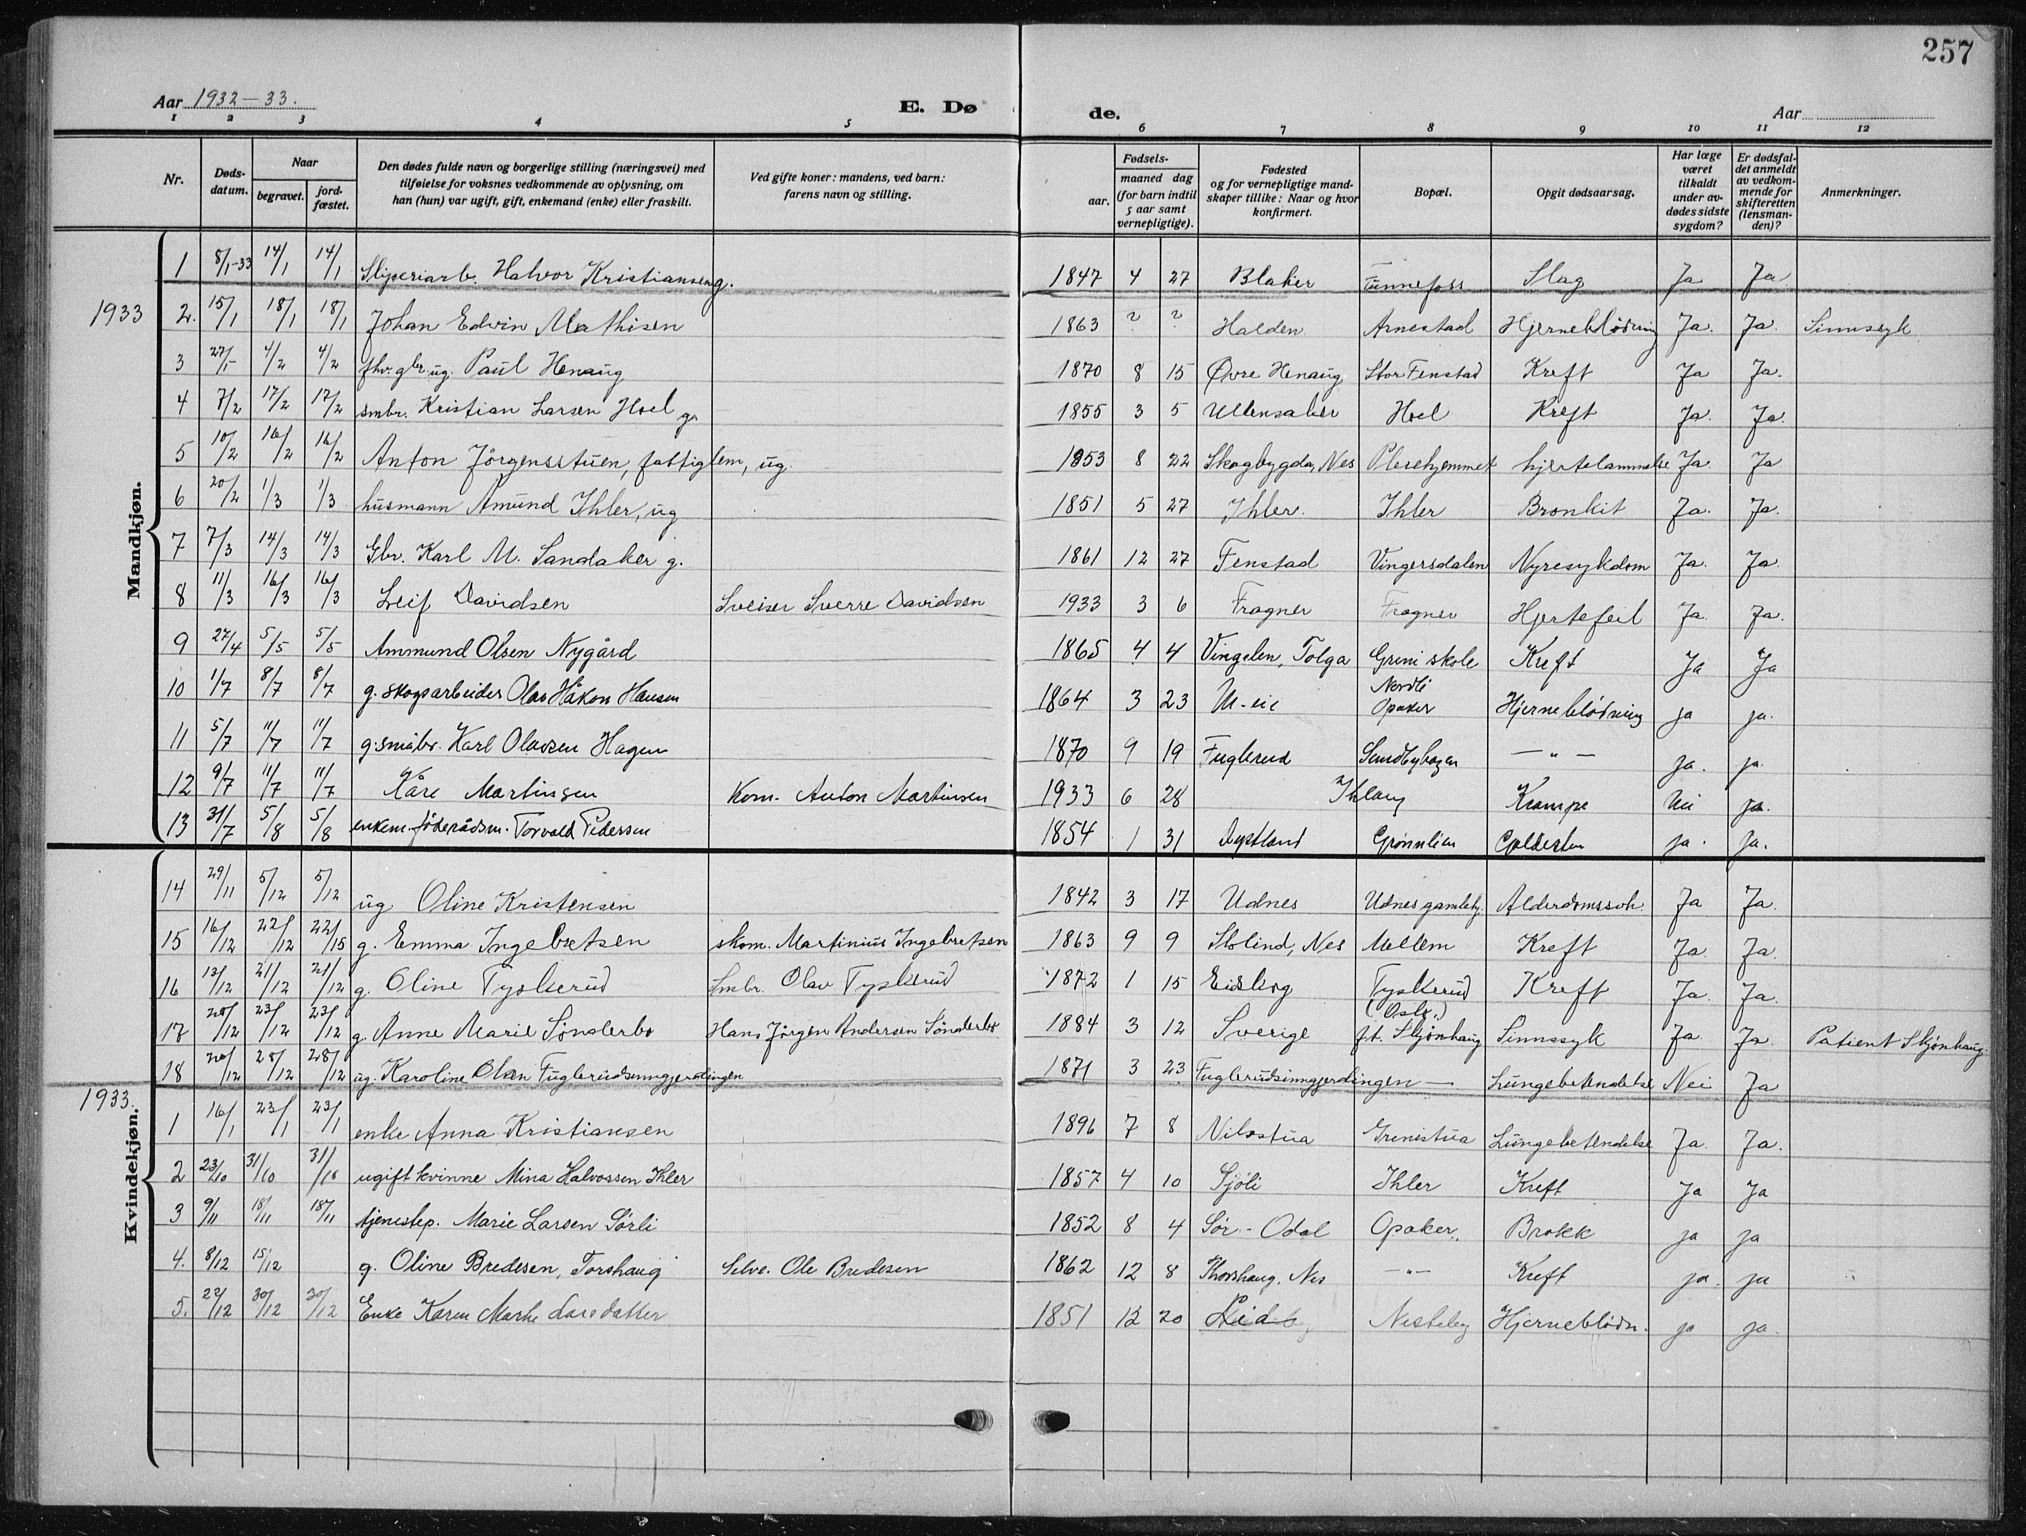 257
Aar 1932-33. E. Dø de. Aar
1 2 3 4 5 6 7 8 9 10 11 12
Nr. Døds-datum. Naar begravet. jord-fæstet. Den dødes fulde navn og borgerlige stilling (næringsvei) med tilføielse for voksnes vedkommende av oplysning, om han (hun) var ugift, gift, enkemand (enke) eller fraskilt. Ved gifte koner: mandens, ved barn: farens navn og stilling. Fødsels- aar. maaned dag (for barn indtil 5 aar samt vernepligtige). Fødested og for vernepligtige mand-skaper tillike: Naar og hvor konfirmert. Bopæl. Opgit dødsaarsag. Har læge været tilkaldt under av-dødes sidste sygdom? Er dødsfal-det anmeldt av vedkom-mende for skifteretten (lensman-den)? Anmerkninger.
Mandkjøn.
1 8/1-33 14/1 14/1 Sliperiarb. Halvor Kristiansen g. 1847 4 27 Blaker Funnefoss Slag Ja Ja
1933 2. 15/1 18/1 18/1 Johan Edvin Mathisen 1863 ? ? Halden Arnestad Hjerneblødning Ja. Ja. Sinnssyk
3 27/1 4/2 4/2 fhv. gbr ug. Paul Henaug 1870 8 15 Øvre Henaug Stor Fenstad Kreft Ja Ja.
4 7/2 17/2 17/2 smbr. Kristian Larsen Hoel g. 1855 3 5 Ullensaker Hoel Kreft Ja. Ja.
5 10/2 16/2 16/2 Anton Jörgensstuen, fattiglem, ug. 1853 8 22 Skogbygda, Nes Pleiehjemmet hjertelammelse Ja. Ja
6 20/2 1/3 1/3 husmann Amund Ihler, ug 1851 5 27 Ihler. Ihler Bronkit Ja. Ja.
7 7/3 14/3 14/3 Gbr. Karl M. Sandaker g. 1861 12 27 Fenstad Vingersdalen Nyresykdom Ja. Ja.
8 11/3 16/3 16/3 Leif Davidsen Sveiser Sverre Davidsen 1933 3 6 Fragner Fragner Hjertefeil Ja. Ja.
9 27/4 5/5 5/5 Ammund Olsen Nygård 1865 4 4 Vingelen, Tolga Greni skole Kreft Ja Ja
10 1/7 8/7 8/7 g. skogsarbeider Olav Håkon Hansen 1864 3 23 U-eie Nordli Opaker Hjerneblødning ja ja.
11 5/7 11/7 11/7 g. småbr. Karl Olavsen Hagen 1870 9 19 Fuglerud Sundbyhagen — " — ja. ja.
12 9/7 11/7 11/7 Kåre Martinsen Kom. Anton Martinsen 1933 6 28 Ihlang Krampe Nei ja.
13 31/7 5/8 5/8 enkem. föderådsm. Torvald Pedersen 1854 1 31 Dystland Grønnlien Galdesten ja. Ja.
Kvindekjøn.
14 29/11 5/12 5/12 ug Oline Kristensen 1842 3 17 Udnes Udnes gamlehj. Alderdomssvk. Ja Ja.
15 16/12 22/12 22/15 g. Emma Ingebretsen skom. Martinius Ingebretsen 1863 9 9 Stolind, Nes Mellem Kreft Ja. Ja.
16 13/12 21/12 21/12 g. Oline Tyskerud Smbr. Olav Tyskerud 1872 1 15 Eidsberg Tyskerud Kreft Ja. Ja.
17 20/12 23/12 23/12 g. Anne Marie Sønderbo Hans Jörgen Andersen Sønderbo 1884 3 12 Sverige (Oslo.) pt. Skjønhaug Sinnssyk Ja. Ja. Patient Skjønhaug.
18 20/12 28/12 28/12 ug. Karoline Olsen Fuglerudsinngjerdingen 1871 3 23 Fuglerudsinngjerdingen — Lungebetendelse Nei Ja
1933. 1 16/1 23/1 23/1 enke Anna Kristiansen 1896 7 8 Nilsstua Grenistua Lungebetendelse Ja. Ja.
2 23/10 31/10 31/10 ugift kvinne Mina Halvorsen Ihler 1857 4 10 Sjöli Ihler Kreft Ja Ja
3 9/11 18/11 18/11 tjenestep. Marie Larsen Sörli 1852 8 4 Sør-Odal Opaker. Brokk ja ja
4. 8/12 15/12 g. Oline Bredesen, Torshaug Selve. Ole Bredesen 1862 12 8 Thorshaug, Nes — " — Kreft ja. ja
5. 22/12 30/12 30/12 Enke Karen Marthe Larsdatter 1851 12 20 Nesteby Hjerneblødn. ja ja.